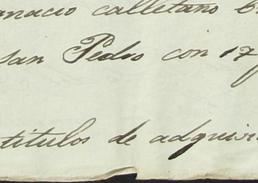 calletano
san Pedro con 17
titulos de adquiri